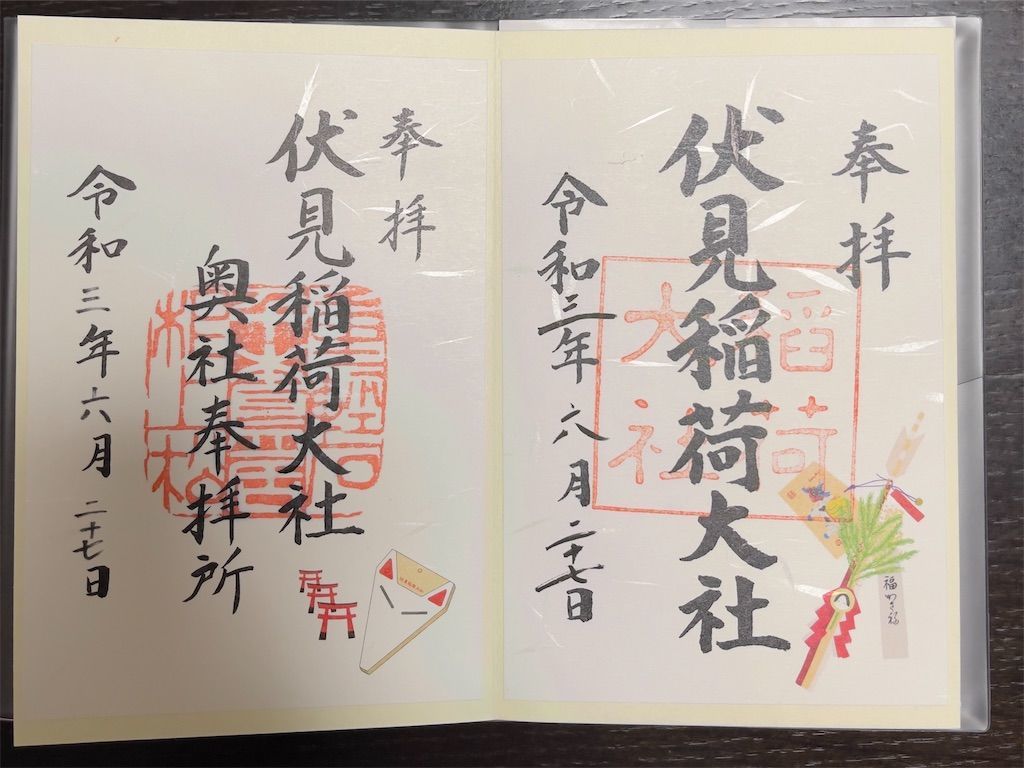 奉拝
伏見稲荷大社
令和三年六月二十七日
稲荷
大社
福わき福
奉拝
伏見稲荷大社
奥社奉拝所
令和三年六月二十七日